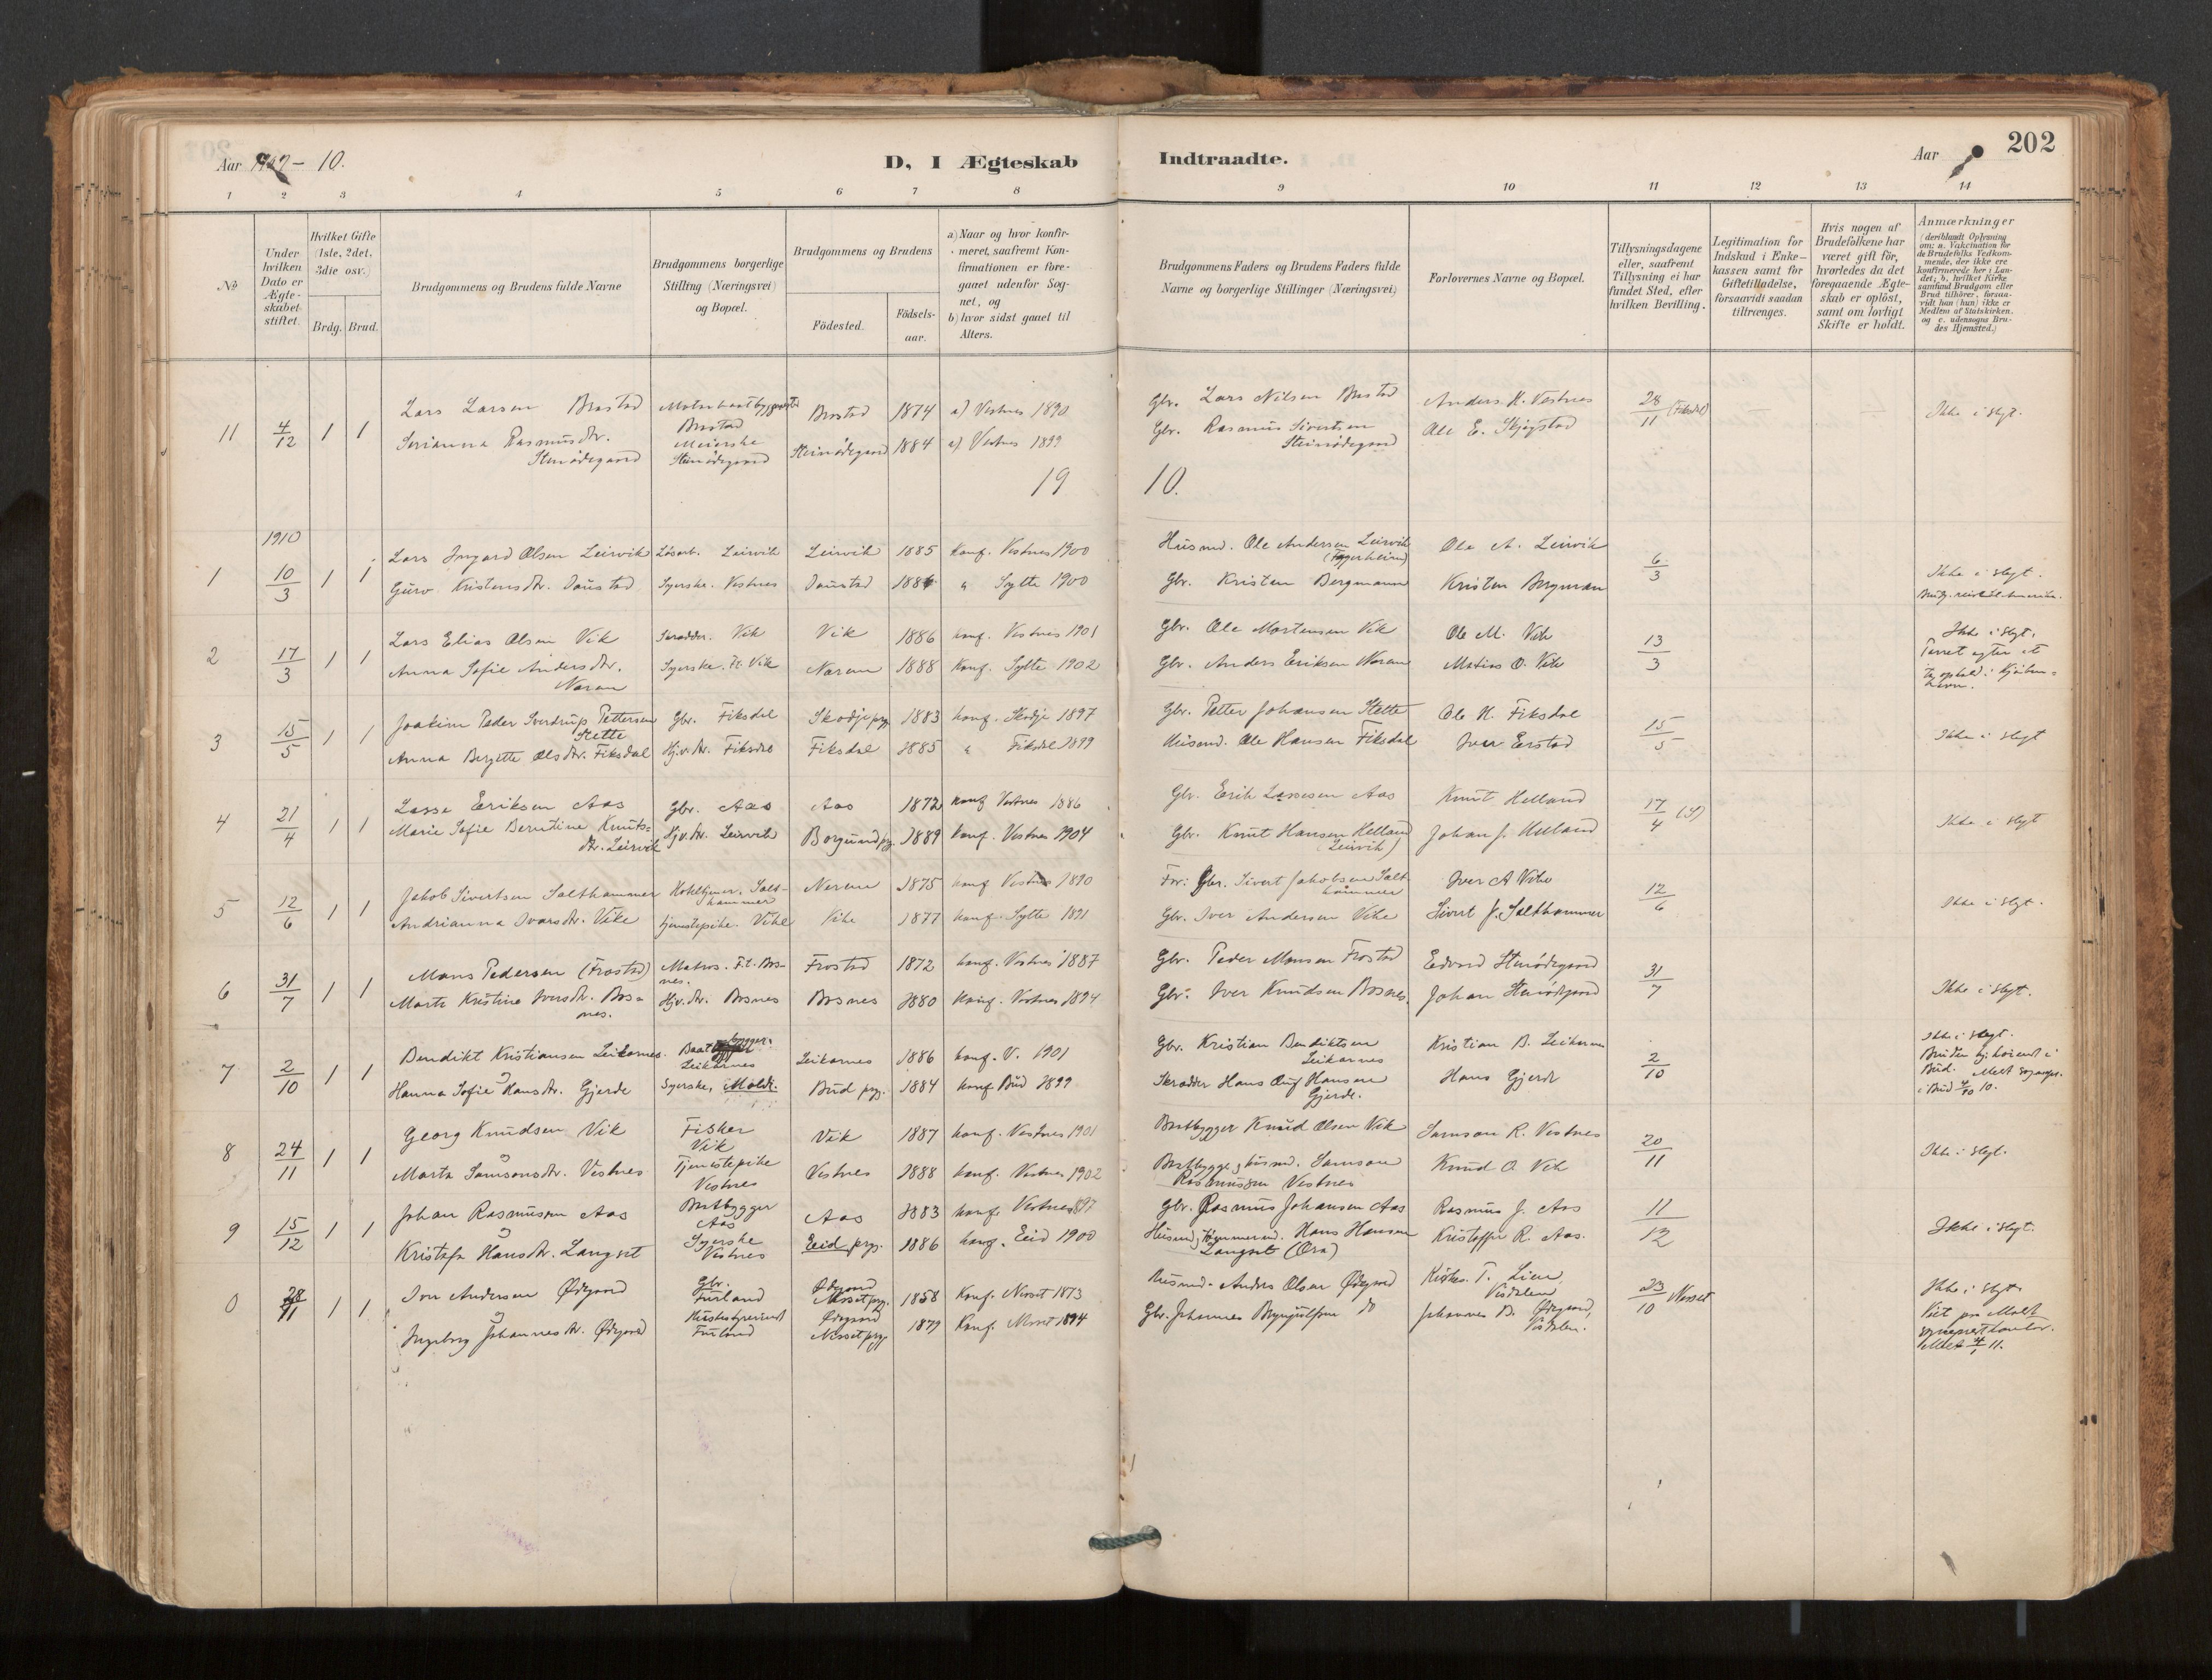 202
Aar 1909 - 10.
D, I Ægteskab
Indtraadte.
Aar
1 2 3 4 5 6 7 8 9 10 11 12 13 14
No
Under hvilken Dato er Ægte-skabet stiftet.
Hvilket Gifte (1ste, 2det, 3die osv.)
Brdg. Brud.
Brudgommens og Brudens fulde Navne
Brudgommens borgerlige Stilling (Næringsvei) og Bopæl.
Brudgommens og Brudens
Födested.
Födsels-aar.
a) Naar og hvor konfir-meret, saafremt Kon-firmationen er fore-gaaet udenfor Sog-net, og
b) hvor sidst gaaet til Alters.
Brudgommens Faders og Brudens Faders fulde Navne og borgerlige Stillinger (Næringsvei)
Forlovernes Navne og Bopæl.
Tillysningsdagene eller, saafremt Tillysning ei har fundet Sted, efter hvilken Bevilling.
Legitimation for Indskud i Enke-kassen samt for Giftetilladelse, forsaavidt saadan tiltrænges.
Hvis nogen af Brudefolkene har været gift för, hvorledes da det foregaaende Ægte-skab er oplöst, samt om lovligt Skifte er holdt.
Anmærkninger (deriblandt Oplysning om: a. Vakcination for de Brudefolks Vedkom-mende, der ikke ere konfirmerede her i Lan-det; b. hvilket Kirke samfund Brudgom eller Brud tilhörer, forsaa-vidt han (hun) ikke er Medlem af Statskirken. og c. udensogns Bru-des Hjemsted.)
11 4/12 1 1 Lars Larsen Brastad Brastad Brastad 1874 a) Vestnes 1890 Gbr. Lars Nilsen Brastad Anders K. Vestnes 28/11 (Fiksdal) Ikke i slegt.
Rasmusdr. Stenødegaard Meierske Stenødegaard Steinødegaard 1884 a) Vestnes 1899 Gbr. Rasmus Sivertsen Steinødegaard Ole E. Skjegstad
19 10.
1910
1 10/3 1 1 Lars Ingard Olsen Leirvik Løsarb. Leirvik Leirvik 1885 Konf. Vestnes 1900 Husmd. Ole Andersen Leirvik Ole A. Leirvik 6/3
Guro Kristensdr. Daustad Syerske. Vestnes Daustad 1886 " Sylte 1900 Gbr. Kristen Bergmann Kristen Bergman Ikke i slegt.
2 17/3 1 1 Lars Elias Olsen Vik Skrædder. Vik Vik 1886 konf. Vestnes 1901 Gbr. Ole Mortensen Vik Ole M. Vik 13/3 Ikke i slegt.
Anna Sofie Andersdr. Neran Syerske. Ft. Vik Neran 1888 Konf. Sylte 1902 Gbr. Anders Eriksen Neran Matias O. Vik
3 15/5 1 1 Joakim Peder Sverdrup Pettersen Stette Gbr. Fiksdal Skodje prg. 1883 konf. Skodje 1897 Gbr. Petter Johansen Stette Ole H. Fiksdal 15/5 Ikke i slegt
Anna Bergitte Olsdtr. Fiksdal Hjv. dr. Fiksdal Fiksdal 1885 " Fiksdal 1899 Husmd. Ole Hansen Fiksdal Iver Eirstad
4 21/4 1 1 Lasse Eriksen Aas Gbr. Aas Aas 1872 konf Vestnes 1886 Gbr. Erik Lassesen Aas Knut Helland 17/4 (S) Ikke i slegt
Marie Sofie Berntine Knuts-dr. Leirvik Hjv. dr. Leirvik Borgund prg. 1889 konf. Vestnes 1904 Gbr. Knut Hansen Helland (Leirvik) Johan J. Helland
5 12/6 1 1 Jakob Sivertsen Salthammer Salt-hammer Nerem 1875 konf Vestnes 1890 For: Gbr. Sivert Jakobsen Salt-hammer Iver A Vike 12/6 Ikke i slegt.
Andrianna Ivarsdr. Vike tjenestepike. Vike Vike 1877 konf. Sylte 1891 Gbr. Iver Andersen Vike Sivert J. Salthammer
6 31/7 1 1 Mons Pedersen (Frostad) Matros. F.t. Bos-nes. Frostad 1872 konf. Vestnes 1887 Gbr. Peder Monsen Frostad Edvard Stenødegaard 31/7 Ikke i slegt.
Marta Kristine Iversdr. Bos-nes. Hjv. dr. Bosnes Bosnes 1880 Konf. Vestnes 1894 Gbr. Iver Knudsen Bosnes. Johan Stenødegaard
7 2/10 1 1 Bendikt Kristiansen Leikarnes. Baatbygger. Leikarnes Leikarnes 1886 konf. V. 1901 Gbr. Kristian Bendiktsen Leikarnes Kristian B. Leikarnes 2/10 Ikke i slegt.
Hanna Sofie Hansdr. Gjerde Syerske, Molde. Bud prg. 1884 konf Bud 1899 Skrædder Hans Hansen Gjerde. Hans Gjerde i Bud
8 24/11 1 1 Georg Knudsen Vik Fisker Vik Vik 1887 konf. Vestnes 1901 Baatbygger Knud Olsen Vik Samson R. Vestnes 20/11 Ikke i slegt.
Marta Samsonsdr. Vestnes Tjenestepike Vestnes Vestnes 1888 konf. Vestnes 1902 Baatbygger, husmd. Samson Rasmussen Vestnes Knud O. Vik
9 15/12 1 1 Johan Rasmussen Aas Baatbygger Aas Aas 1883 konf. Vestnes 1897 Gbr. Rasmus Johansen Aas Rasmus J. Aas 11/12 Ikke i slegt.
Hansdr. Langset Syerske Vestnes Eid prg. 1886 konf. Eid 1900 Hans Hansen Langset (Øra) Kristoffer R. Aas.
0 28/11 1 1 Iver Andersen Ødegaard Gbr. Furland Ødegaard Nesset prg. 1858 Konf. Nesset 1873 Husmd. Anders Olsen Ødegaard T. Lien, Visdalen 23/10 Nesset Ikke i slegt
Ingeborg Johannesdr. Ødegaard Furland Ødegaard Nesset prg 1879 Konf. Nesset 1894 Gbr. Johannes Bryngulfsen do Johannes B. Ødegaard, Visdalen.